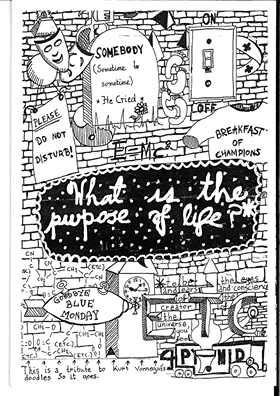 ON
SOMEBODY
(Sometime to
sometime)
*He Cried*
OFF
PLEASE
DO NOT
DISTURB!
BREAKFAST
OF
CHAMPIONS
E=MC²
What is the
purpose of life?*
GOODBYE
BLUE
MONDAY
*to be
the eyes
and ears
and conscience
of
the
creator
of
the
universe,
you
fool
ETC
CN
CN
CH₃
(ETC.)
CH₃-O
O=C
(ETC.)
This is a tribute to Kurt Vonnegut's
doodles. So it goes.